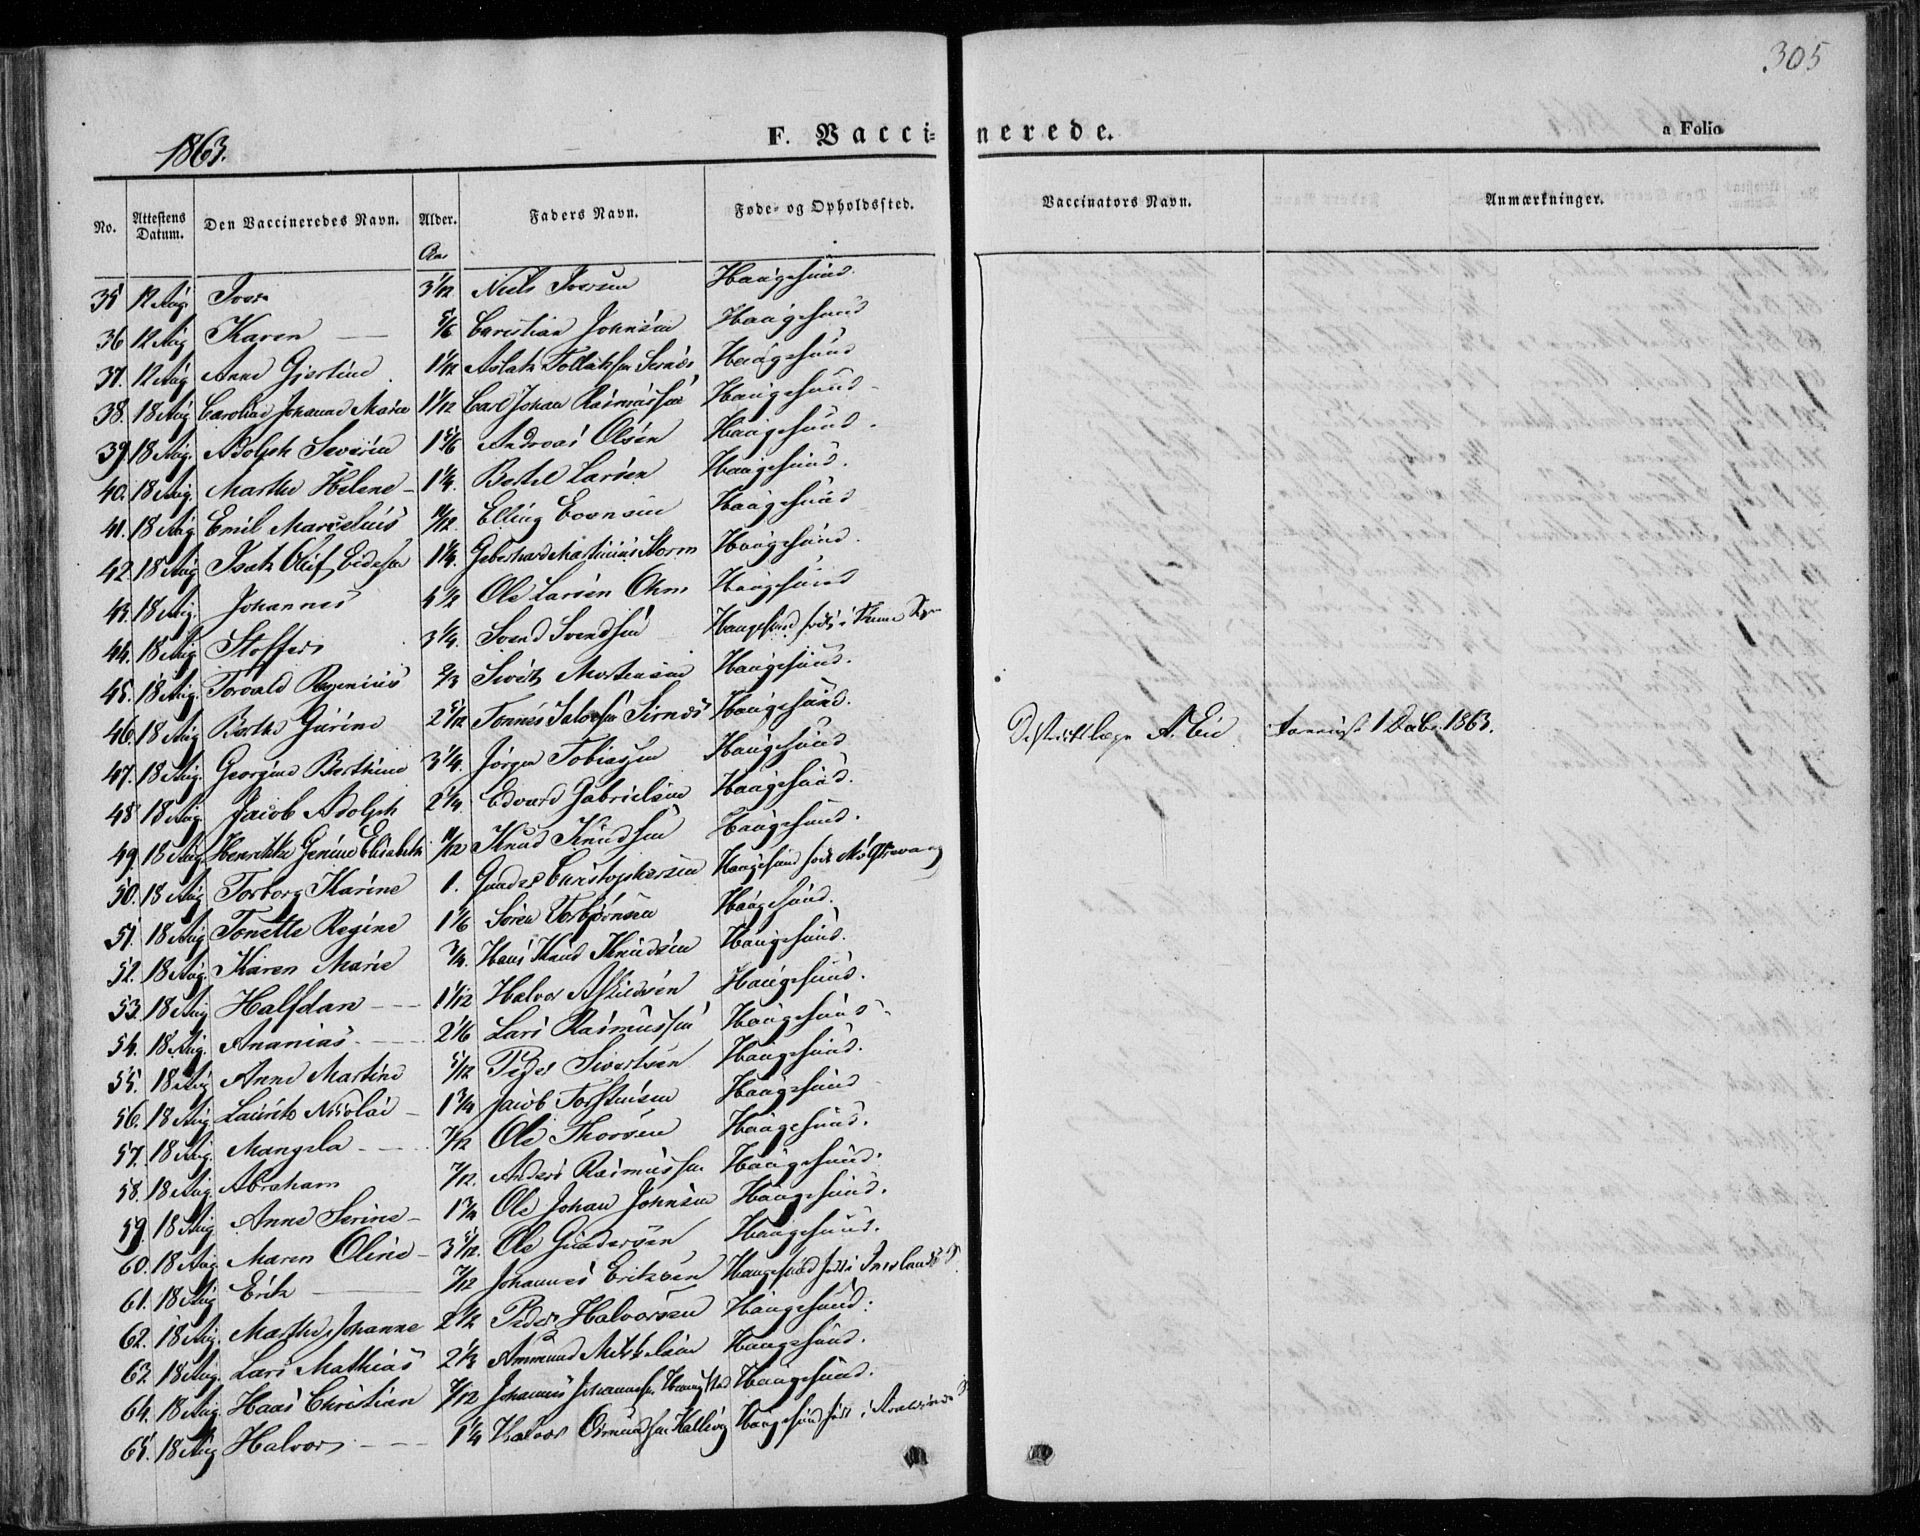 305
1863.
F. Vaccinerede.
a Folio
No. Attestens Datum. Den Vaccineredes Navn. Alder. Faders Navn. Føde- og Opholdssted. Vaccinators Navn. Anmærkninger.
Aar
35 12 Aug Iver 3 1/12 Niels Iversen Haugesund.
36 12 Aug Karen 5/6 Christian Johnsen Haugesund
37. 12 Aug Anne Gjertine 1 1/12 Aslak Tollaksen Haugesund
38. 18 Aug Caroline Johanne Marie 1 1/12 Carl Johan Rasmussen Haugesund
39 18 Aug. Adolph Severin 1 5/6 Andreas Olsen Haugesund.
40. 18 Aug. Marthe Helene 1 1/4. Bertel Larsen Haugesund.
41. 18 Aug Emil Marselius 11/12. Elling Evensen Haugesund
42. 18 Aug Isak Oluf 1 1/4. Geberhard Martinius Storm Haugesund.
43. 18 Aug. Johannes 4 1/2 Ole Larsen Ohm Haugesund
44. 18 Aug Stoffer 3 1/4. Svend Svendsen Haugesund født i
45. 18 Aug. Torvald 2/3 Sivert Mortensen Haugesund.
46. 18 Aug Berthe Gurine 2 5/12 Tønnes Salvesen Sirnes Haugesund. Districtslæge A. Eie 1863.
47. 18 Aug. Georgine Berthine 3 1/4. Jørgen Tobiassen Haugesund
48 18 Aug Jacob Adolph 2 1/4 Edvard Gabrielsen Haugesund.
49 18 Aug Henrikke Elisabeth 11/12 Knud Knudsen Haugesund.
50. 18 Aug Torborg Karine 1. Gunder Christophersen Haugesund født
51. 18 Aug Tonette Regine 1 1/6 Søren Torbjørnsen Haugesund.
52. 18 Aug. Karen Marie 3/4. Hans Knud Knudsen Haugesund.
53. 18 Aug Halfdan 1 1/12 Halvor Haugesund.
54. 18 Aug. Ananias 2 1/6 Lars Rasmussen Haugesund
55. 18 Aug Anne Martine 5/12 Peder Sivertsen Haugesund.
56. 18 Aug. Laurits Nicolai 1 3/4 Jacob Torstensen Haugesund
57. 18 Aug. Mangela 7/12 Ole Thorsen Haugesund.
58. 18 Aug. Abraham 7/12. Anders Rasmussen Haugesund.
59 18 Aug Anne Serine 1 3/4 Ole Johan Johnsen Haugesund.
60. 18 Aug Maren Oline 3 5/12. Ole Gundersen Haugesund.
61. 18 Aug Erik 7/12 Johannes Eriksen Haugesund født i
62. 18 Aug. Marthe Johanne 2 1/2 Peder Halvorsen Haugesund.
63 18 Aug. Lars Mathias 2 1/3 Ammund Mikkelsen Haugesund.
64. 18 Aug. Haas Christian 7/12 Johannes Johannesen Haugesund.
65. 18 Aug Halvor 1 1/4 Halvor Osmundsen Haugesund født i